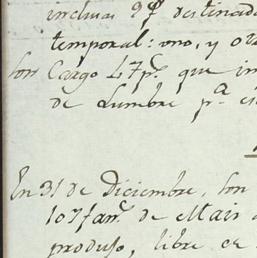 inclusas 9 qe destinada
temporal: uno, y otro
son Cargo 47ps. que im
de Lumbre pa. es
En 31 de Diciembre, son
107 fans. de Maiz
produjo, libre de